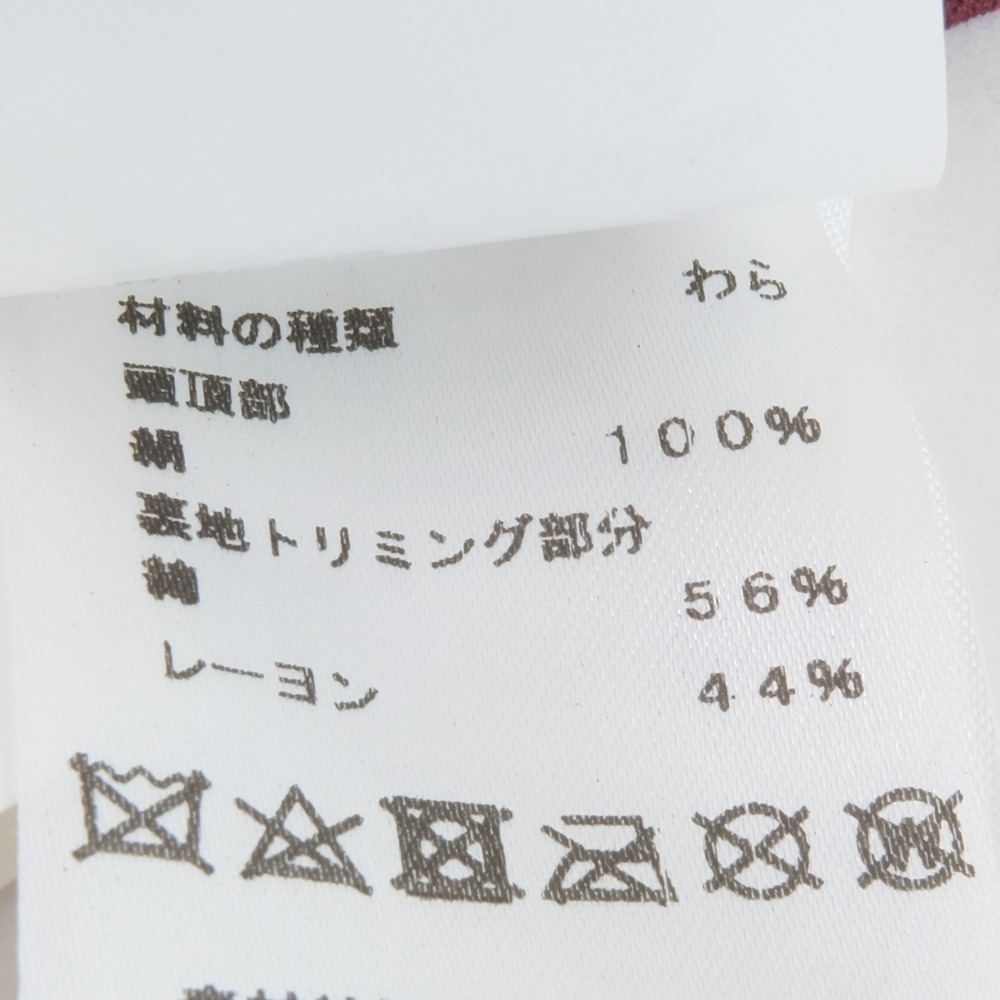 材料の種類 わら
頂部
100%
裏地トリミング部分
56%
レーヨン 44%
W